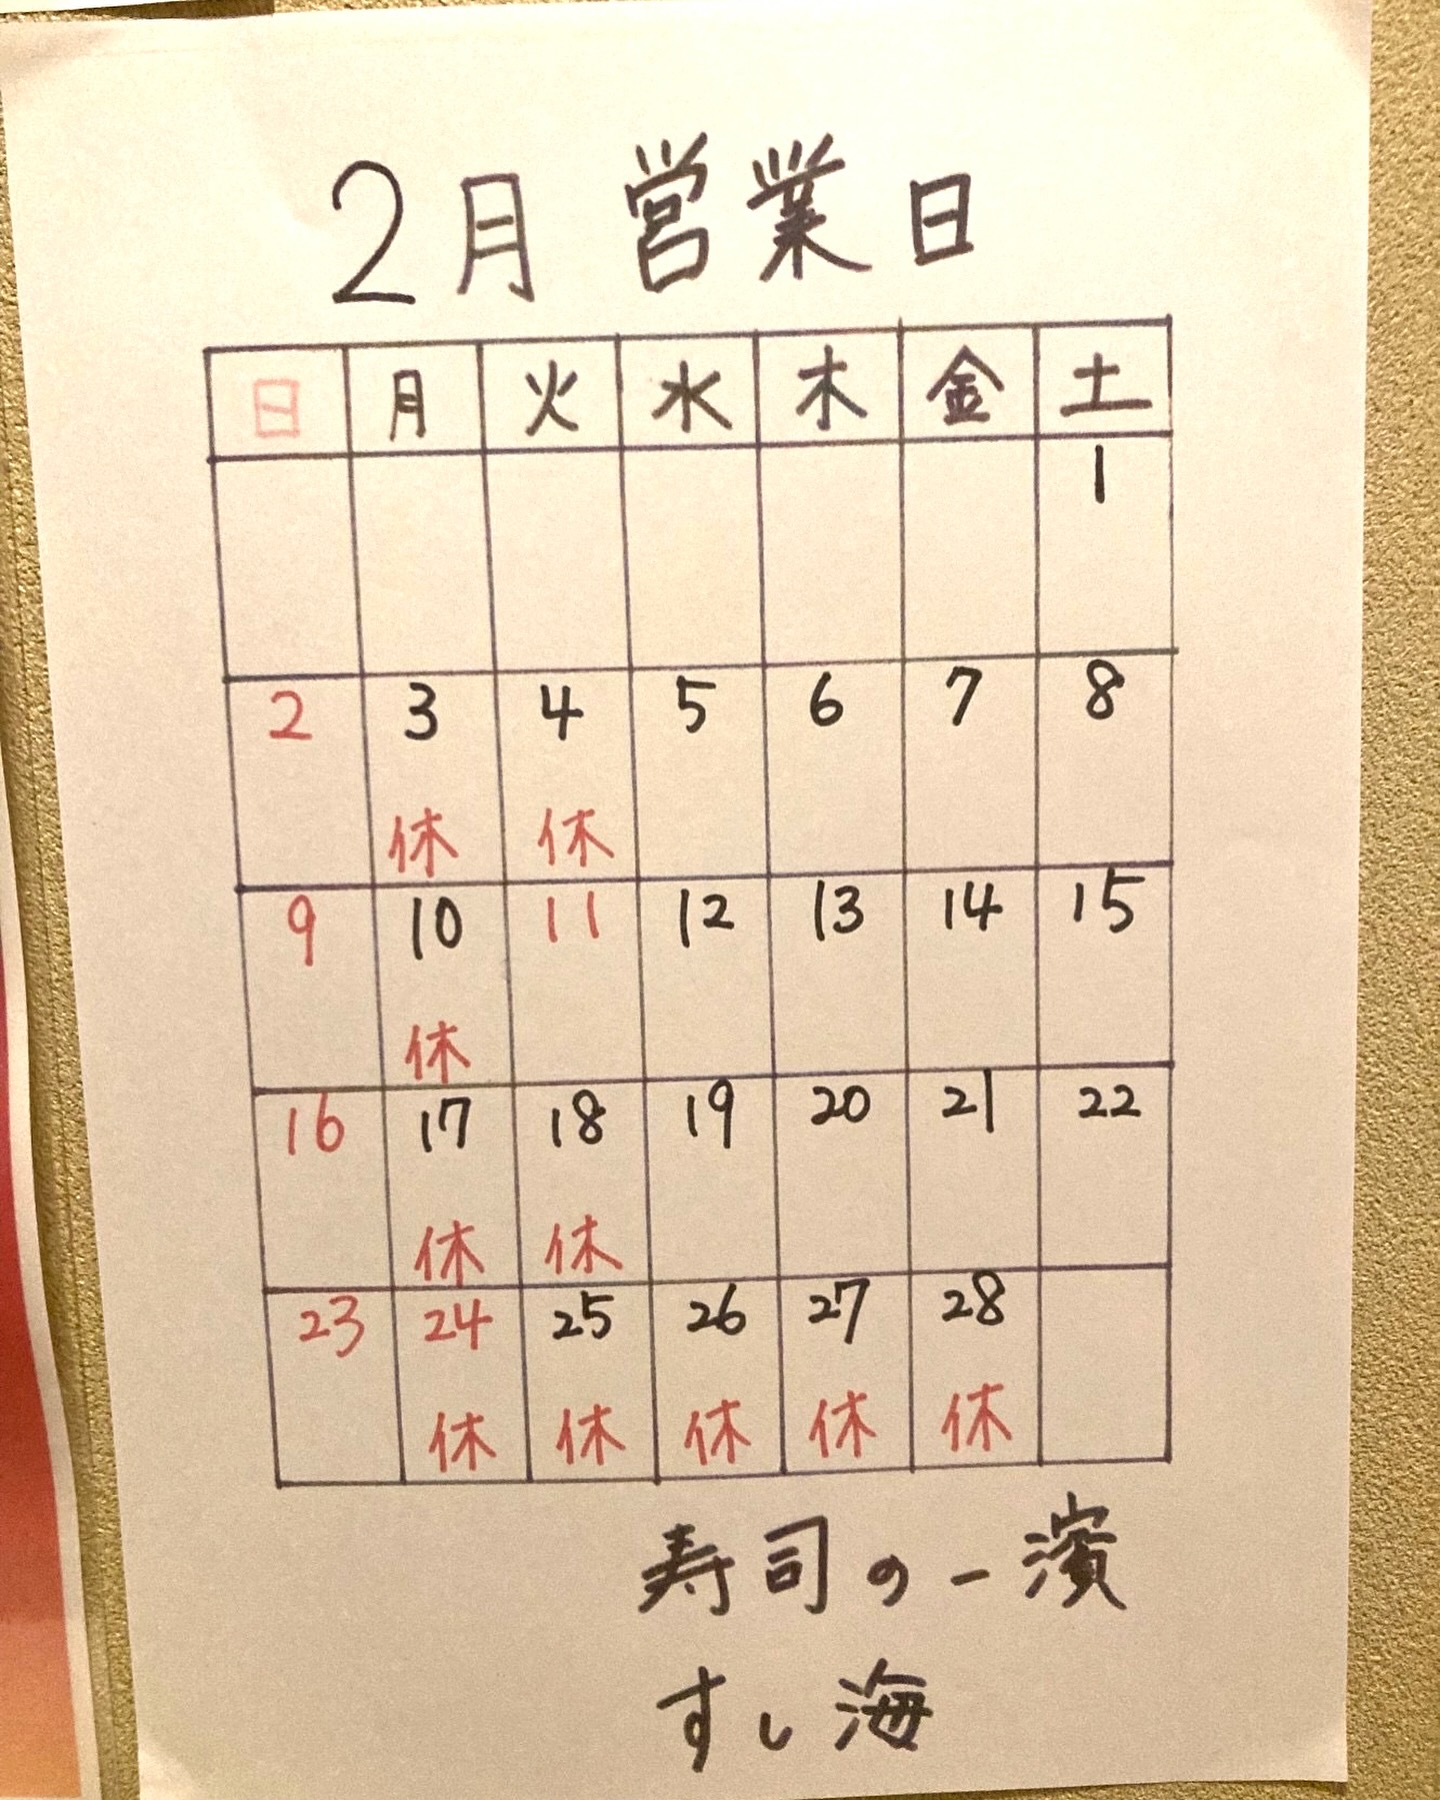 2月 営業日
日 月 火 水 木 金 土
1
2 3 4 5 6 7 8
休 休
9 10 11 12 13 14 15
休
16 17 18 19 20 21 22
休 休
23 24 25 26 27 28
休 休 休 休 休
寿司の一濱
すし海